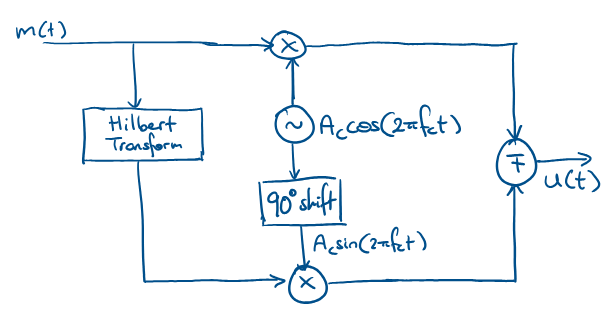 m(t)
×
Hilbert
Transform
~ A_c cos(2πf_c t)
∓
u(t)
90° shift
A_c sin(2πf_c t)
×